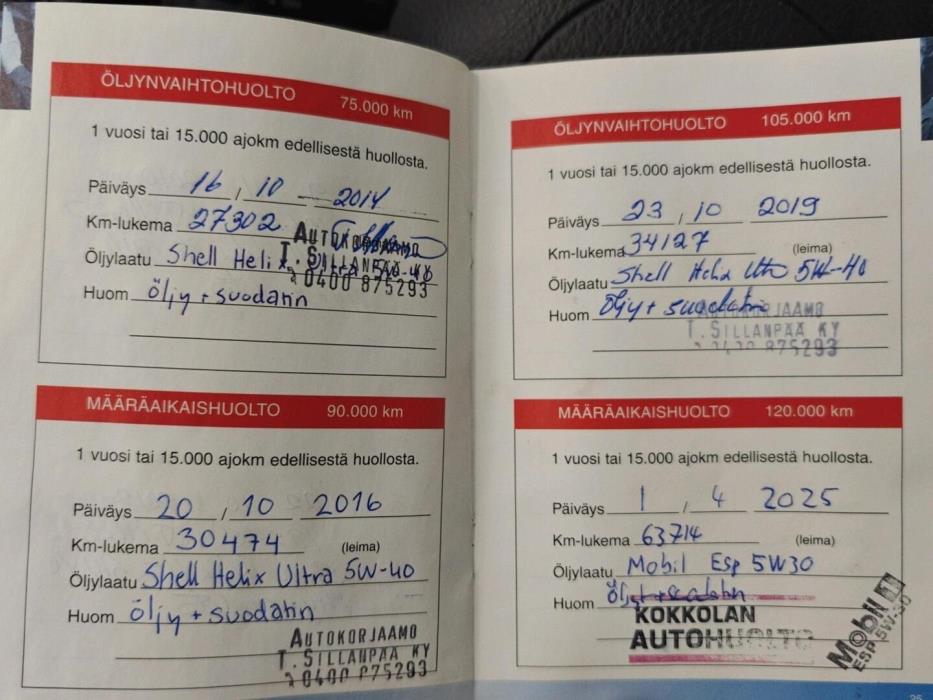 ÖLJYNVAIHTOHUOLTO 75.000 km
1 vuosi tai 15.000 ajokm edellisestä huollosta.
Päiväys 16 / 10 2014
Km-lukema 27302
Öljylaatu Shell Helix Ultra 5W-40
Huom öljy + suodatin
AUTOKORJAAMO
T. SILLANPÄÄ KY
0400 875293
MÄÄRÄAIKAISHUOLTO 90.000 km
1 vuosi tai 15.000 ajokm edellisestä huollosta.
Päiväys 20 / 10 2016
Km-lukema 30474 (leima)
Öljylaatu Shell Helix Ultra 5W-40
Huom öljy + suodatin
AUTOKORJAAMO
T. SILLANPÄÄ KY
0400 875293
ÖLJYNVAIHTOHUOLTO 105.000 km
1 vuosi tai 15.000 ajokm edellisestä huollosta.
Päiväys 23 / 10 2019
Km-lukema 34127 (leima)
Öljylaatu Shell Helix Ultra 5W-40
Huom öljy + suodatin
AUTOKORJAAMO
T. SILLANPÄÄ KY
0400 875293
MÄÄRÄAIKAISHUOLTO 120.000 km
1 vuosi tai 15.000 ajokm edellisestä huollosta.
Päiväys 1 / 4 2025
Km-lukema 63714 (leima)
Öljylaatu Mobil Esp 5W30
Huom öljyt + suodatin
KOKKOLAN
AUTOHUOLTO
Mobil 1
ESP 5W-30